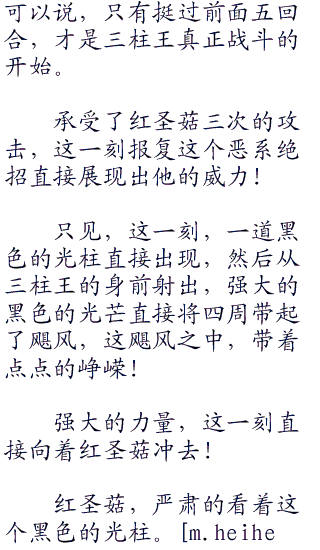 可以说，只有挺过前面五回
合，才是三柱王真正战斗的
开始。
承受了红圣菇三次的攻
击，这一刻报复这个恶系绝
招直接展现出他的威力！
只见，这一刻，一道黑
色的光柱直接出现，然后从
三柱王的身前射出，强大的
黑色的光芒直接将四周带起
了飓风，这飓风之中，带着
点点的峥嵘！
强大的力量，这一刻直
接向着红圣菇冲去！
红圣菇，严肃的看着这
个黑色的光柱。[m.heihe